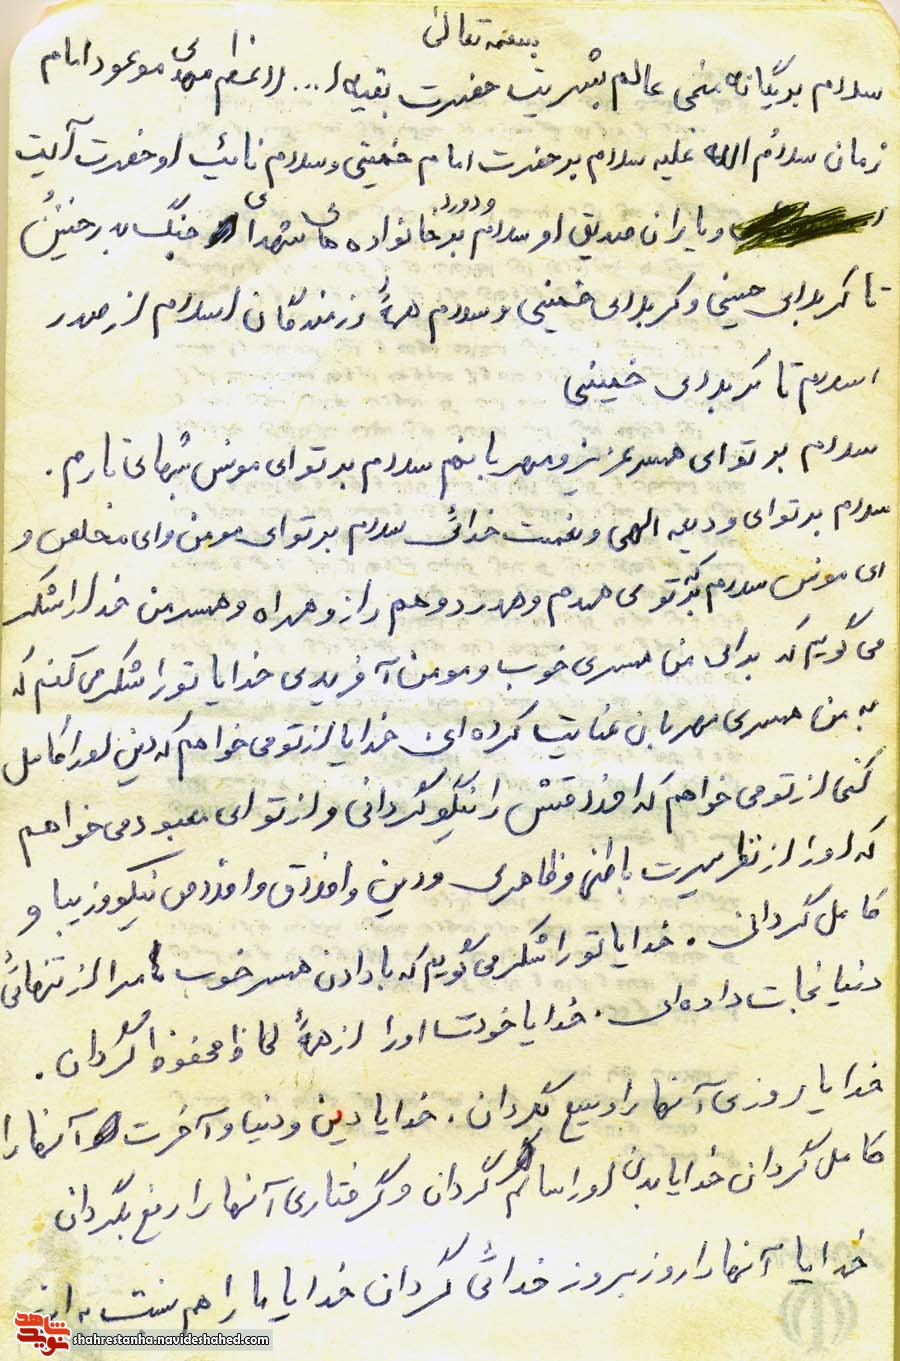 بسمه تعالی
سلام بر یگانه منجی عالم بشریت حضرت بقیه ا... الاعظم مهدی موعود امام
زمان سلام الله علیه سلام بر حضرت امام خمینی و سلام نائب او حضرت آیت
و یاران صدیق او سلام و درود بر خانواده های شهدای جنگ بدر حنین
تا کربلای حسینی و کربلای خمینی و سلام همهٔ رزمندگان اسلام از صدر
اسلام تا کربلای خمینی
سلام بر تو ای همسر عزیز و مهربانم سلام بر تو ای مونس شبهای تارم .
سلام بر تو ای ودیعه الهی و نعمت خدائی سلام بر تو ای مومن و ای مخلص و
ای مونس سلام بر تو که می همدم و همدرد و هم راز و همراه و همسر من خدا را شکر
می گویم که برای من همسری خوب و مومن آفریدی خدایا تو را شکر می کنم که
به من همسری مهربان عنایت کرده ای خدایا از تو می خواهم که دین او را کامل
کنی از تو می خواهم که اخلاقش را نیکو گردانی و از تو ای معبود می خواهم
که او را از نظر سیرت باطنی و ظاهری و دین و اخلاق و اخلاص نیکو و زیبا و
کامل گردانی . خدایا تو را شکر می گویم که با دادن همسر خوب مرا از تنهائی
دنیا نجات داده ای . خدایا خودت او را از همهٔ لحاظ محفوظ گردان .
خدایا روزی آنها را وسیع بگردان . خدایا دین و دنیا و آخرت آنها را
کامل گردان خدایا بدن او را سالم گردان و گرفتاری آنها را رفع بگردان
خدایا آنها را روز بروز خدائی گردان خدایا ما را هم نسبت به
شاهد نوید
shahrestanha.navideshahed.com